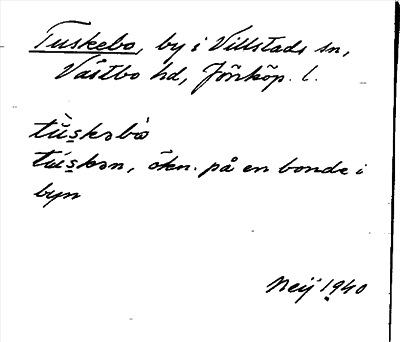 Tuskebo, by i Villstads sn,
Västbo hd, Jönköp. l.
tùskəbò
túskən, ökn. på en bonde i
byn
Neij 1940